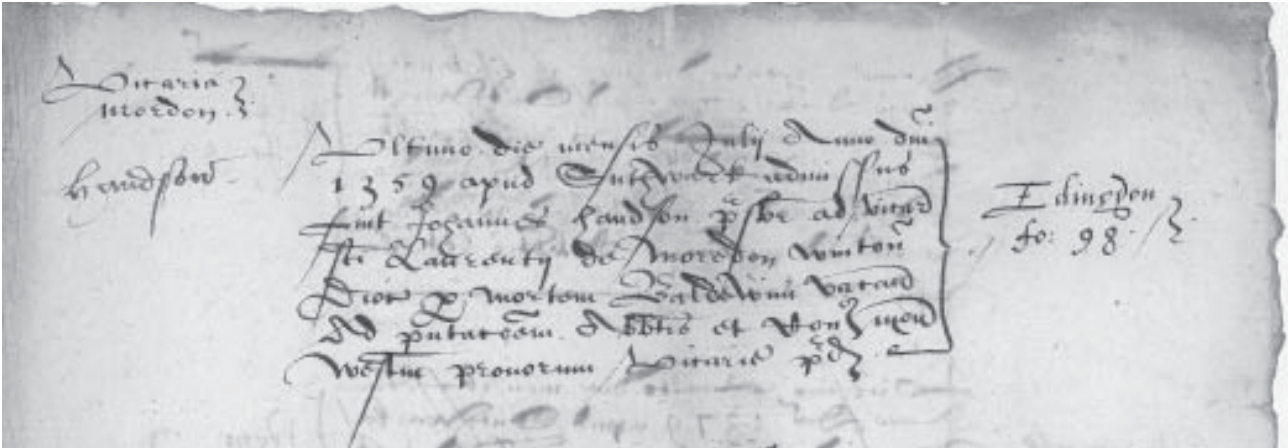 Vicaria
Mordon
Handson
Ultimo die mensis Julij Anno dni
1359 apud Suthwark admissus
fuit Johannes Handson prsbr ad vicar
sti Laurentij de Moredon winton
Dioc p mortem Baldewini vacan
Ad pntacoem Abbtis et Con mon
westm pronorum vicarie pd
Edingdon
fo: 98